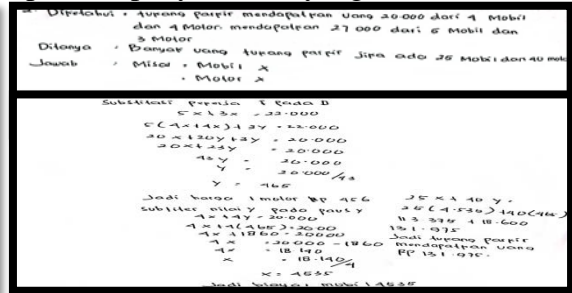 2. Diketahui : tukang parkir mendapatkan uang 20.000 dari 4 Mobil
dan 4 Motor. mendapatkan 27 000 dari 5 Mobil dan
3 Motor
Ditanya : Banyak uang tukang parkir jika ada 25 Mobil dan 40 motor
Jawab : Misal • Mobil x
• Motor x
Substitusi
pada
5x + 3x = 22.000
5(4x+4x)+3y = 22.000
20x+20y+3y = 20.000
20x+23y = 20.000
43y = 20.000
y = 20.000/43
y = 465
Jadi harga 1 motor RP 456
nilai y pada
4x+4y = 20.000
4x+4(465) = 20.00
4x+1860 = 20000
4x = 20.000 - 1860
4x = 18 140
x = 18.140/4
x = 4535
Jadi biaya mobil 4535
25 x + 40 y =
25(4.535)+40(465)
113 375 + 18.600
131.975
Jadi tukang parkir
mendapatkan uang
RP 131.975.